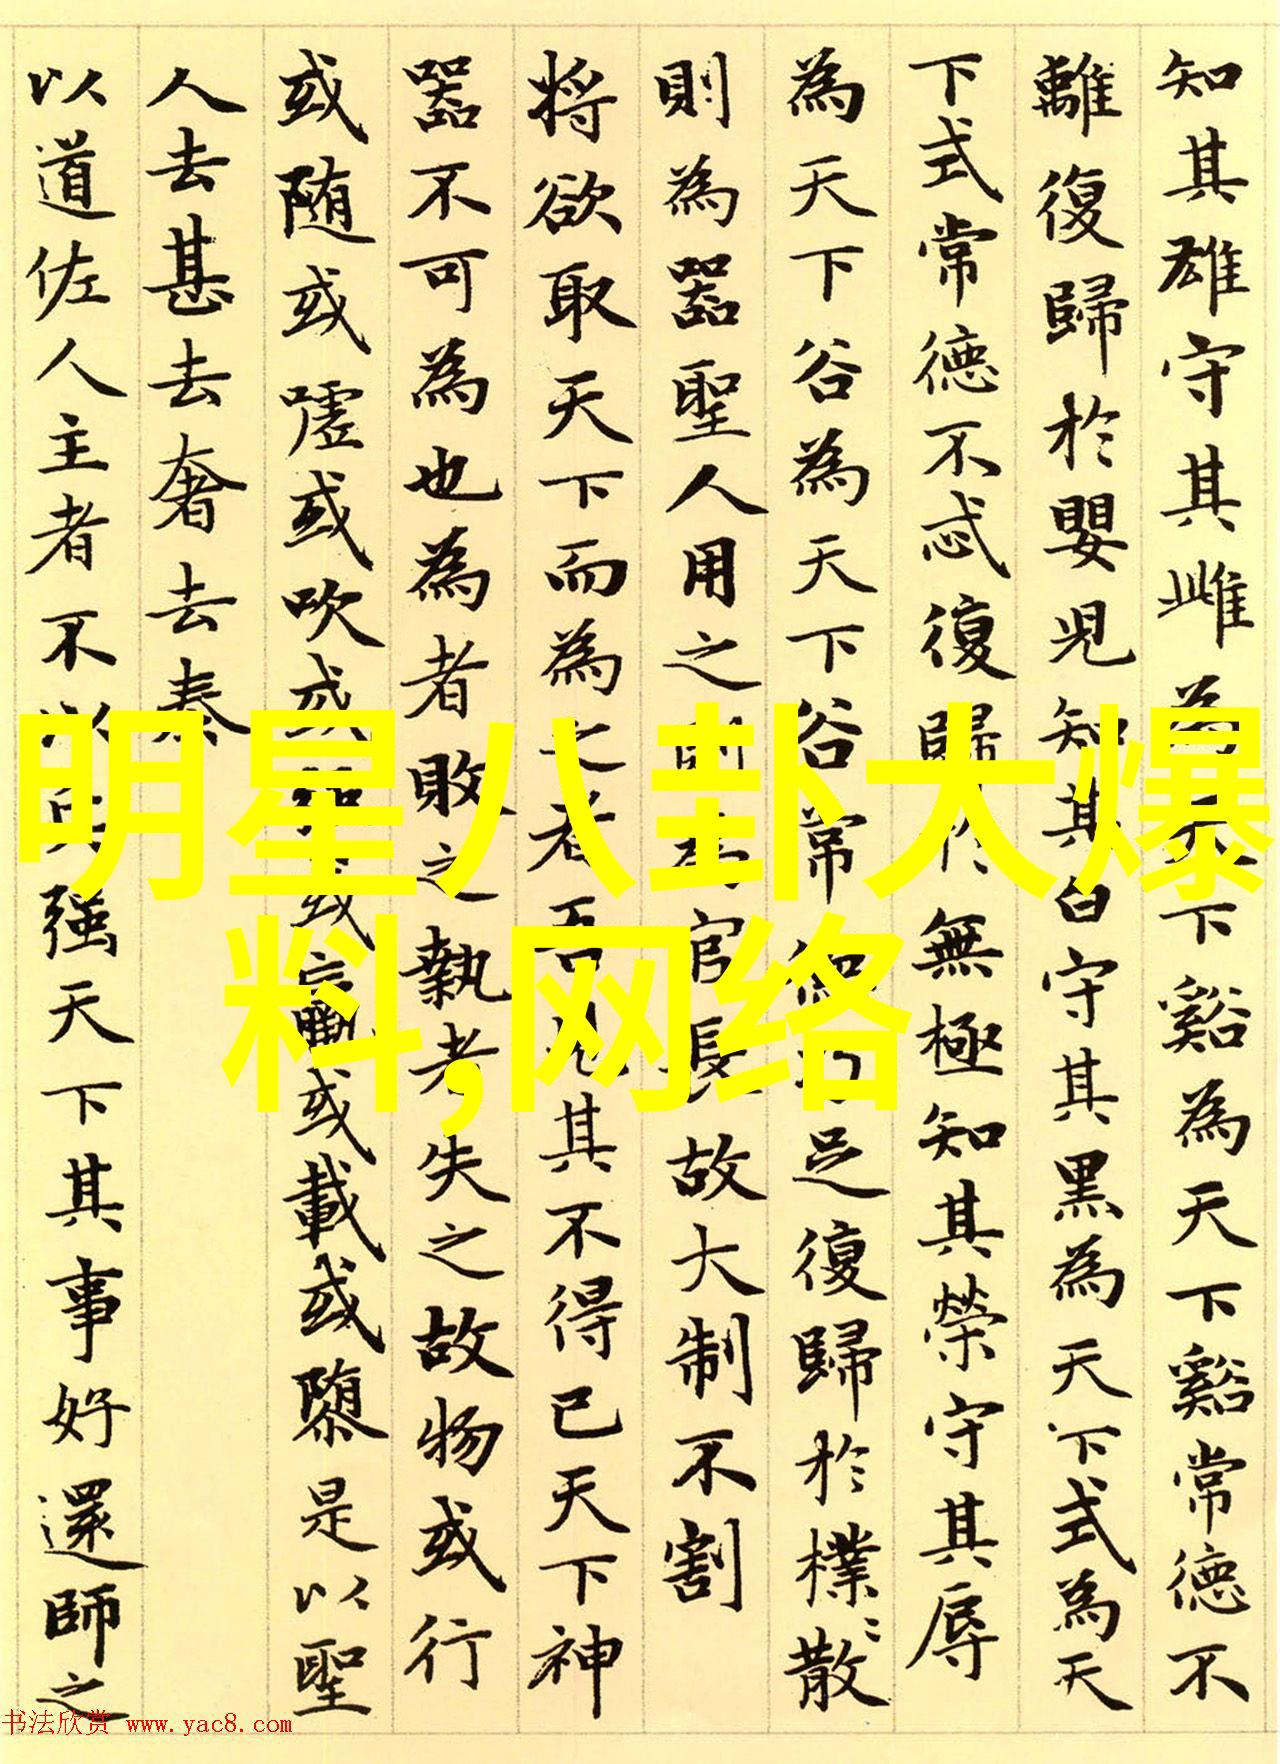 知其雄守其雌為天下谿為天下谿常德不
離復歸於嬰兒知其白守其黑為天下式為天
下式常德不忒復歸於無極知其榮守其辱
為天下谷為天下谷常德乃足復歸於樸〻散
則為器聖人用之則為官長故大制不割
將欲取天下而為之者吾見其不得已天下神
器不可為也為者敗之執者失之故物或行
或随或噓或吹或強或羸或載或隳是以聖
人去甚去奢去泰
以道佐人主者不以兵强天下其事好還師之
明星八卦大爆
料,网络
书法欣赏 www.yac8.com